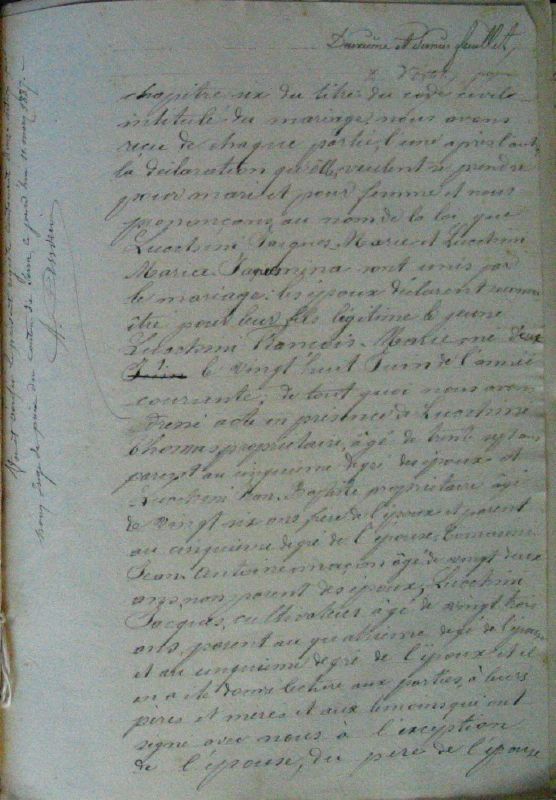 Deuxième et dernier feuillet
chapitre six du titre du code civil
intitulé du mariage, nous avons
reçu de chaque partie, l'une après l'autre
la déclaration qu'elles veulent se prendre
pour mari et pour femme et nous
prononçons au nom de la loi que
Lucchini Jacques Marie et Lucchini
Marie sont unis par
le mariage. les époux déclarent reconn
être pour leur fils légitime le jeune
Lucchini François Marie né
le vingt huit Juin de l'année
courante; de tout quoi nous avons
dressé acte en présence de Lucchini
Thomas, propriétaire, âgé de trente sept ans
parent au cinquième degré des époux et
Lucchini Jean Baptiste propriétaire âgé
de vingt six ans frère de l'époux et parent
au cinquième degré de l'épouse,
Jean Antoine maçon âgé de vingt deux
ans, non parent des époux, Lucchini
Jacques, cultivateur âgé de vingt trois
ans, parent au quatrième degré de l'épouse
et au cinquième degré de l'époux et il
en a été donné lecture aux parties, à leurs
pères et mères et aux témoins qui ont
signé avec nous à l'exception
de l'épouse, du père de l'épouse
nous juge de paix du canton de